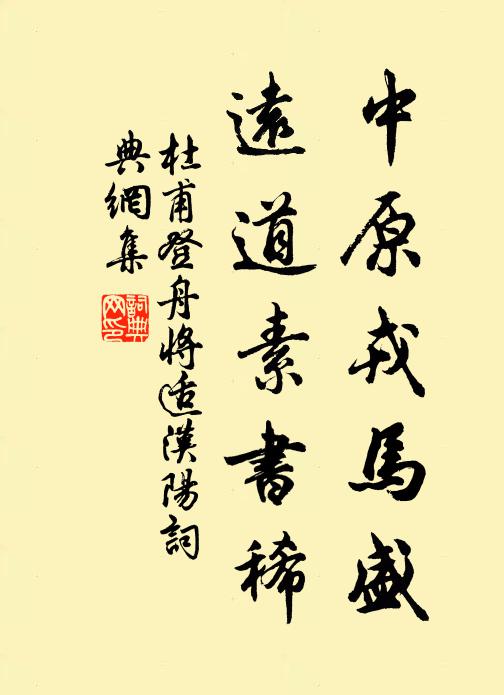 中原戎馬盛
遠道素書稀
杜甫登舟將適漢陽詞
典網集
詞典網印